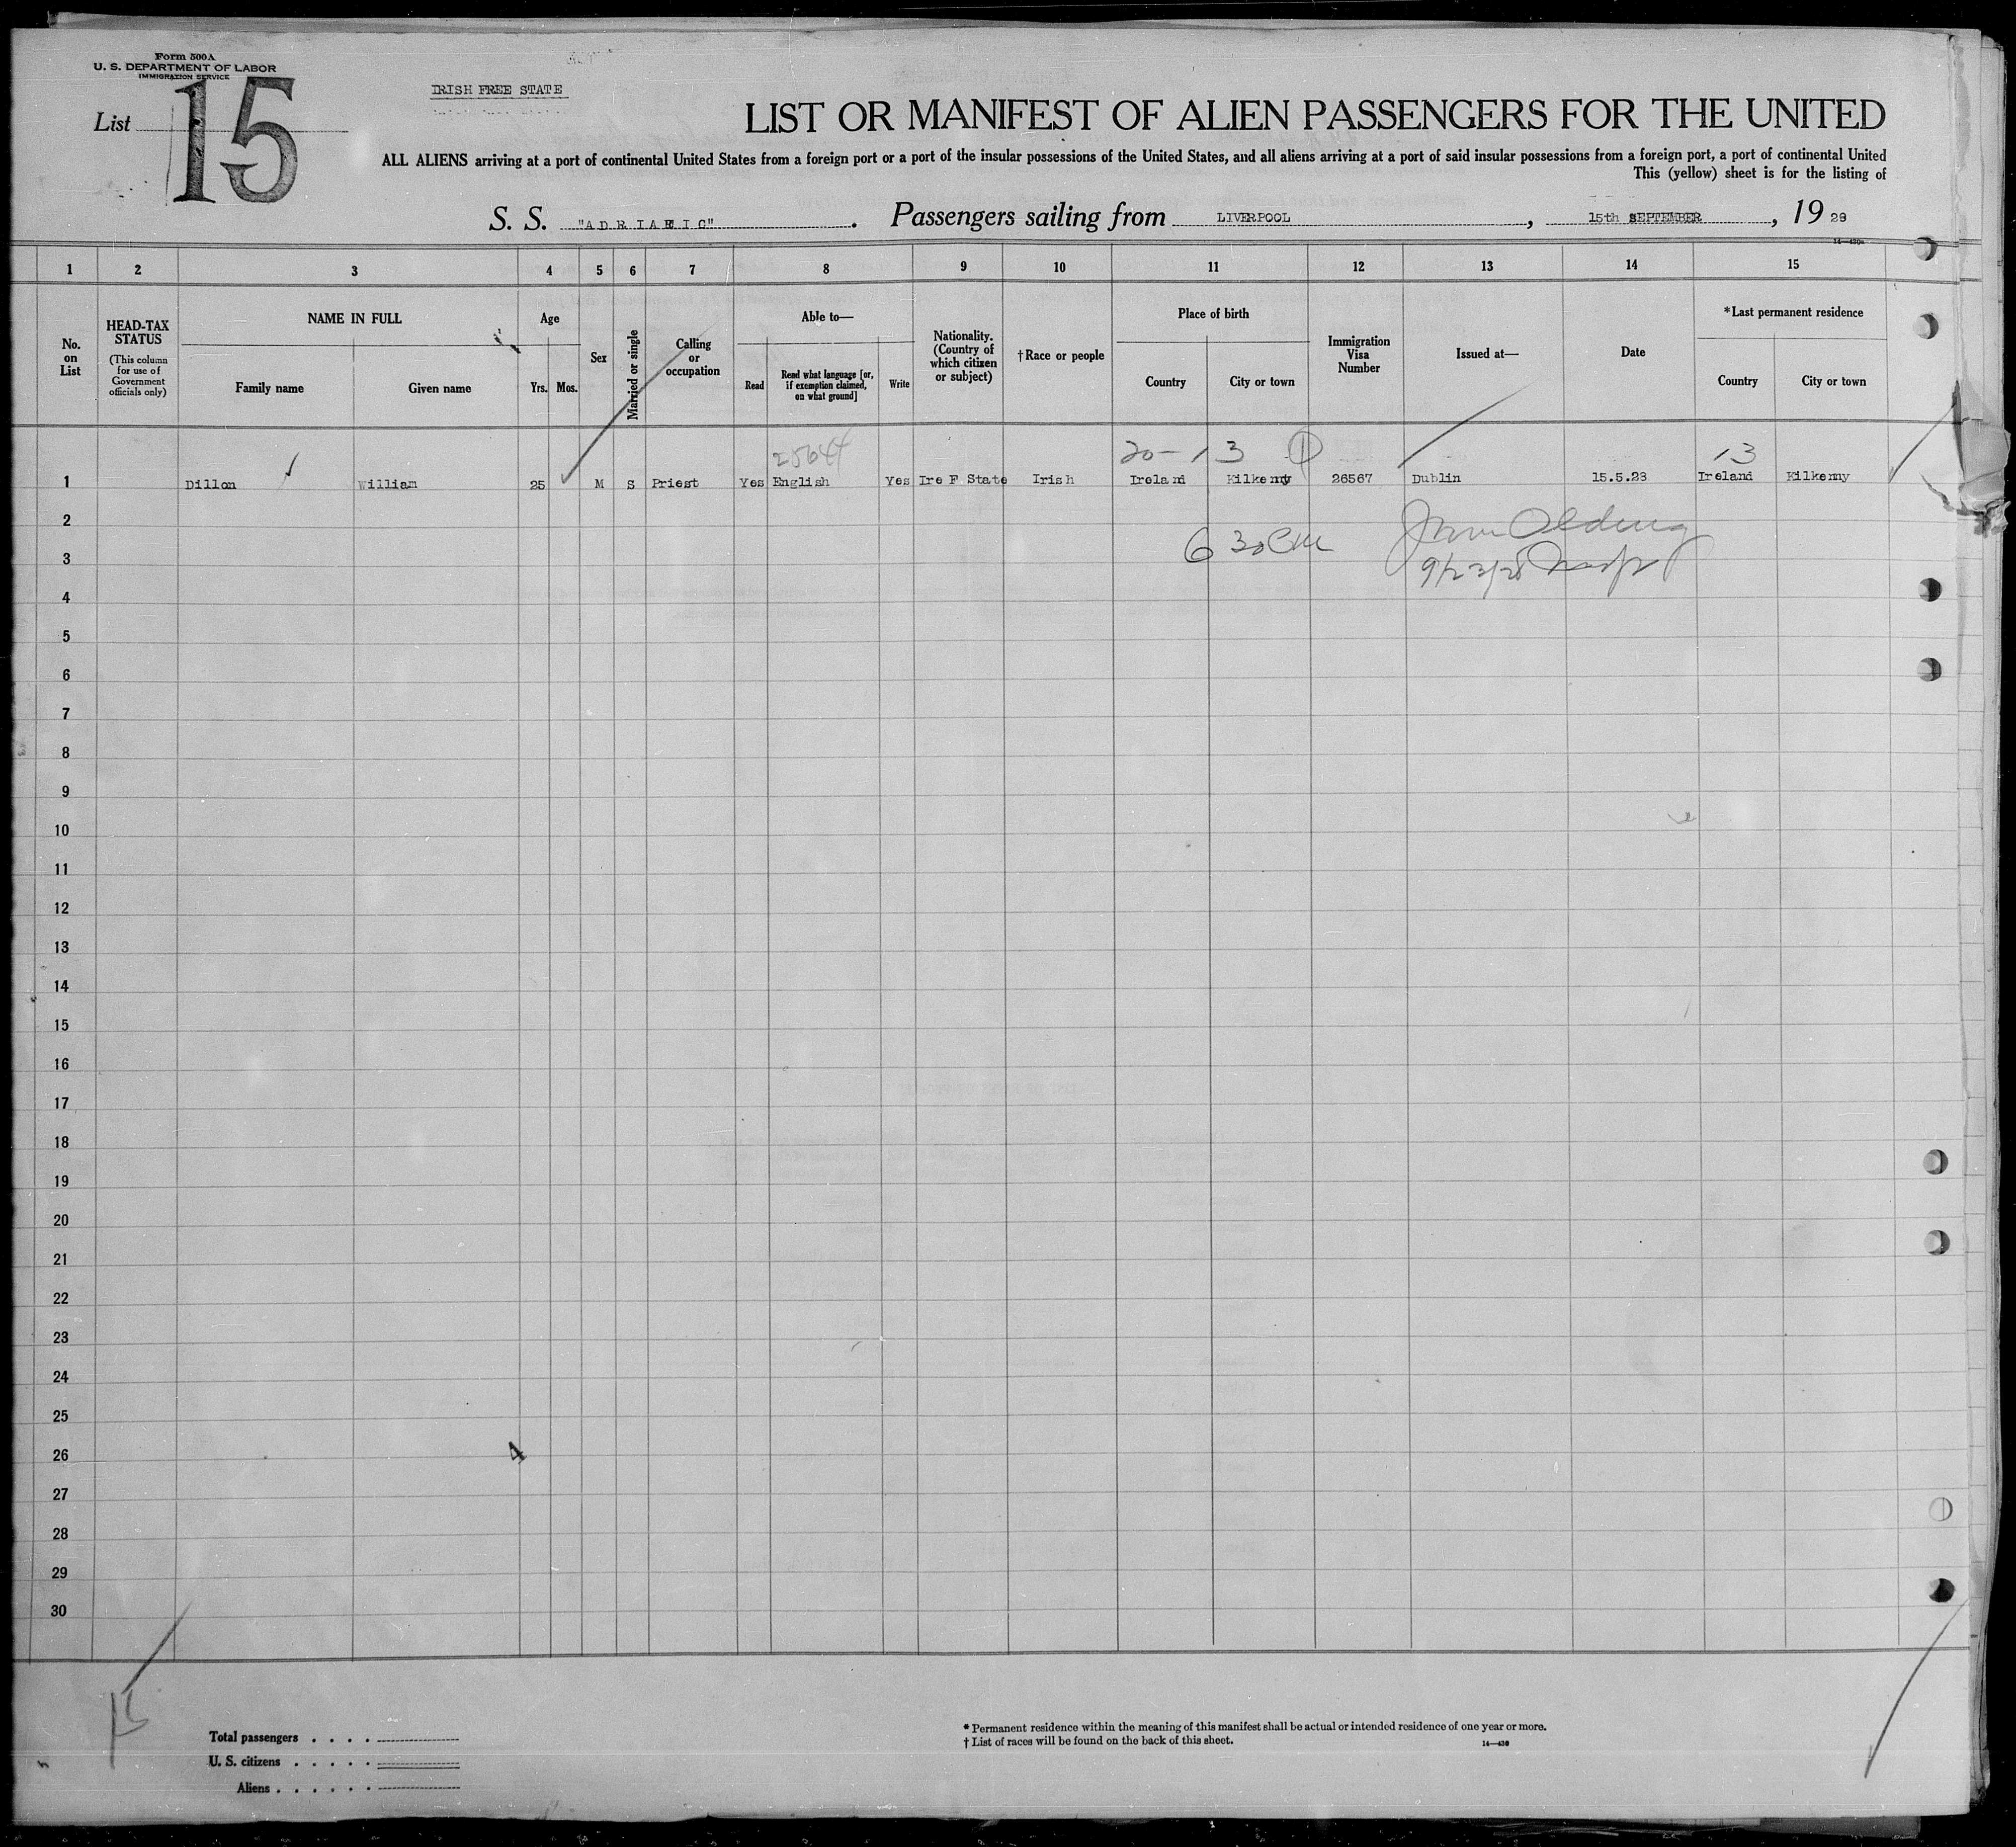 Form 500A
U. S. DEPARTMENT OF LABOR
IMMIGRATION SERVICE
List 15
IRISH FREE STATE
LIST OR MANIFEST OF ALIEN PASSENGERS FOR THE UNITED
ALL ALIENS arriving at a port of continental United States from a foreign port or a port of the insular possessions of the United States, and all aliens arriving at a port of said insular possessions from a foreign port, a port of continental United
This (yellow) sheet is for the listing of
S. S. "ADRIATIC". Passengers sailing from LIVERPOOL, 15th SEPTEMBER, 19 28
14—430a
1 2 3 4 5 6 7 8 9 10 11 12 13 14 15
No. on List
HEAD-TAX STATUS
(This column for use of Government officials only)
NAME IN FULL
Family name Given name
Age
Yrs. Mos.
Sex
Married or single
Calling or occupation
Able to—
Read
Read what language [or, if exemption claimed, on what ground]
Write
Nationality. (Country of which citizen or subject)
†Race or people
Place of birth
Country City or town
Immigration Visa Number
Issued at—
Date
*Last permanent residence
Country City or town
20-13 1 13
1 Dillon William 25 M S Priest Yes English Yes Ire F State Irish Ireland Kilkenny 26567 Dublin 15.5.28 Ireland Kilkenny
2
6 30
3
9/23/28
4
5
6
7
8
9
10
11
12
13
14
15
16
17
18
19
20
21
22
23
24
25
26
4
27
28
29
30
15
Total passengers . . . .
U. S. citizens . . . . .
Aliens . . . . . .
* Permanent residence within the meaning of this manifest shall be actual or intended residence of one year or more.
† List of races will be found on the back of this sheet.
14—430